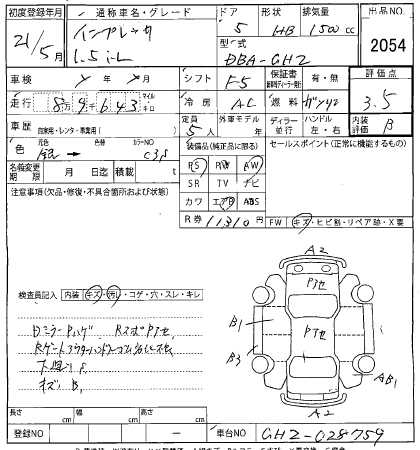 初度登録年月 通称車名・グレード ドア 形状 排気量 出品NO.
21/5月 インプレッサ 1.5 i-L 5 HB 1500cc 2054
型式
DBA-GH2
車検 年 月 シフト F5 保証書 有・無 評価点
走行 8万9千643 マイル キロ 冷房 AC 燃料 ガソリン 3.5
車歴 自家用・レンタ・事業用( ) 定員 5人 外車モデル 年 ディーラー 並行 ハンドル 左・右 内装評価 B
色 元色 色替 カラーNO C3P 装備品(純正品に限る) セールスポイント(正常に機能するもの)
PS PW AW
名義変更期限 月 日迄 積載 t SR TV ナビ
注意事項(欠品・修復・不具合箇所および状態) カワ エアB ABS
R券 11310円 FW キズ・ヒビ割・リペア跡・X要
A2
P下セ
検査員記入 内装 キズ・汚レ・コゲ・穴・スレ・キレ
B1
P下セ
DミラーPハゲ
B3
AB1
下廻りS
キズ、B
A2
長さ cm 幅 cm 高さ cm
登録NO ー 車台NO GH2-028759